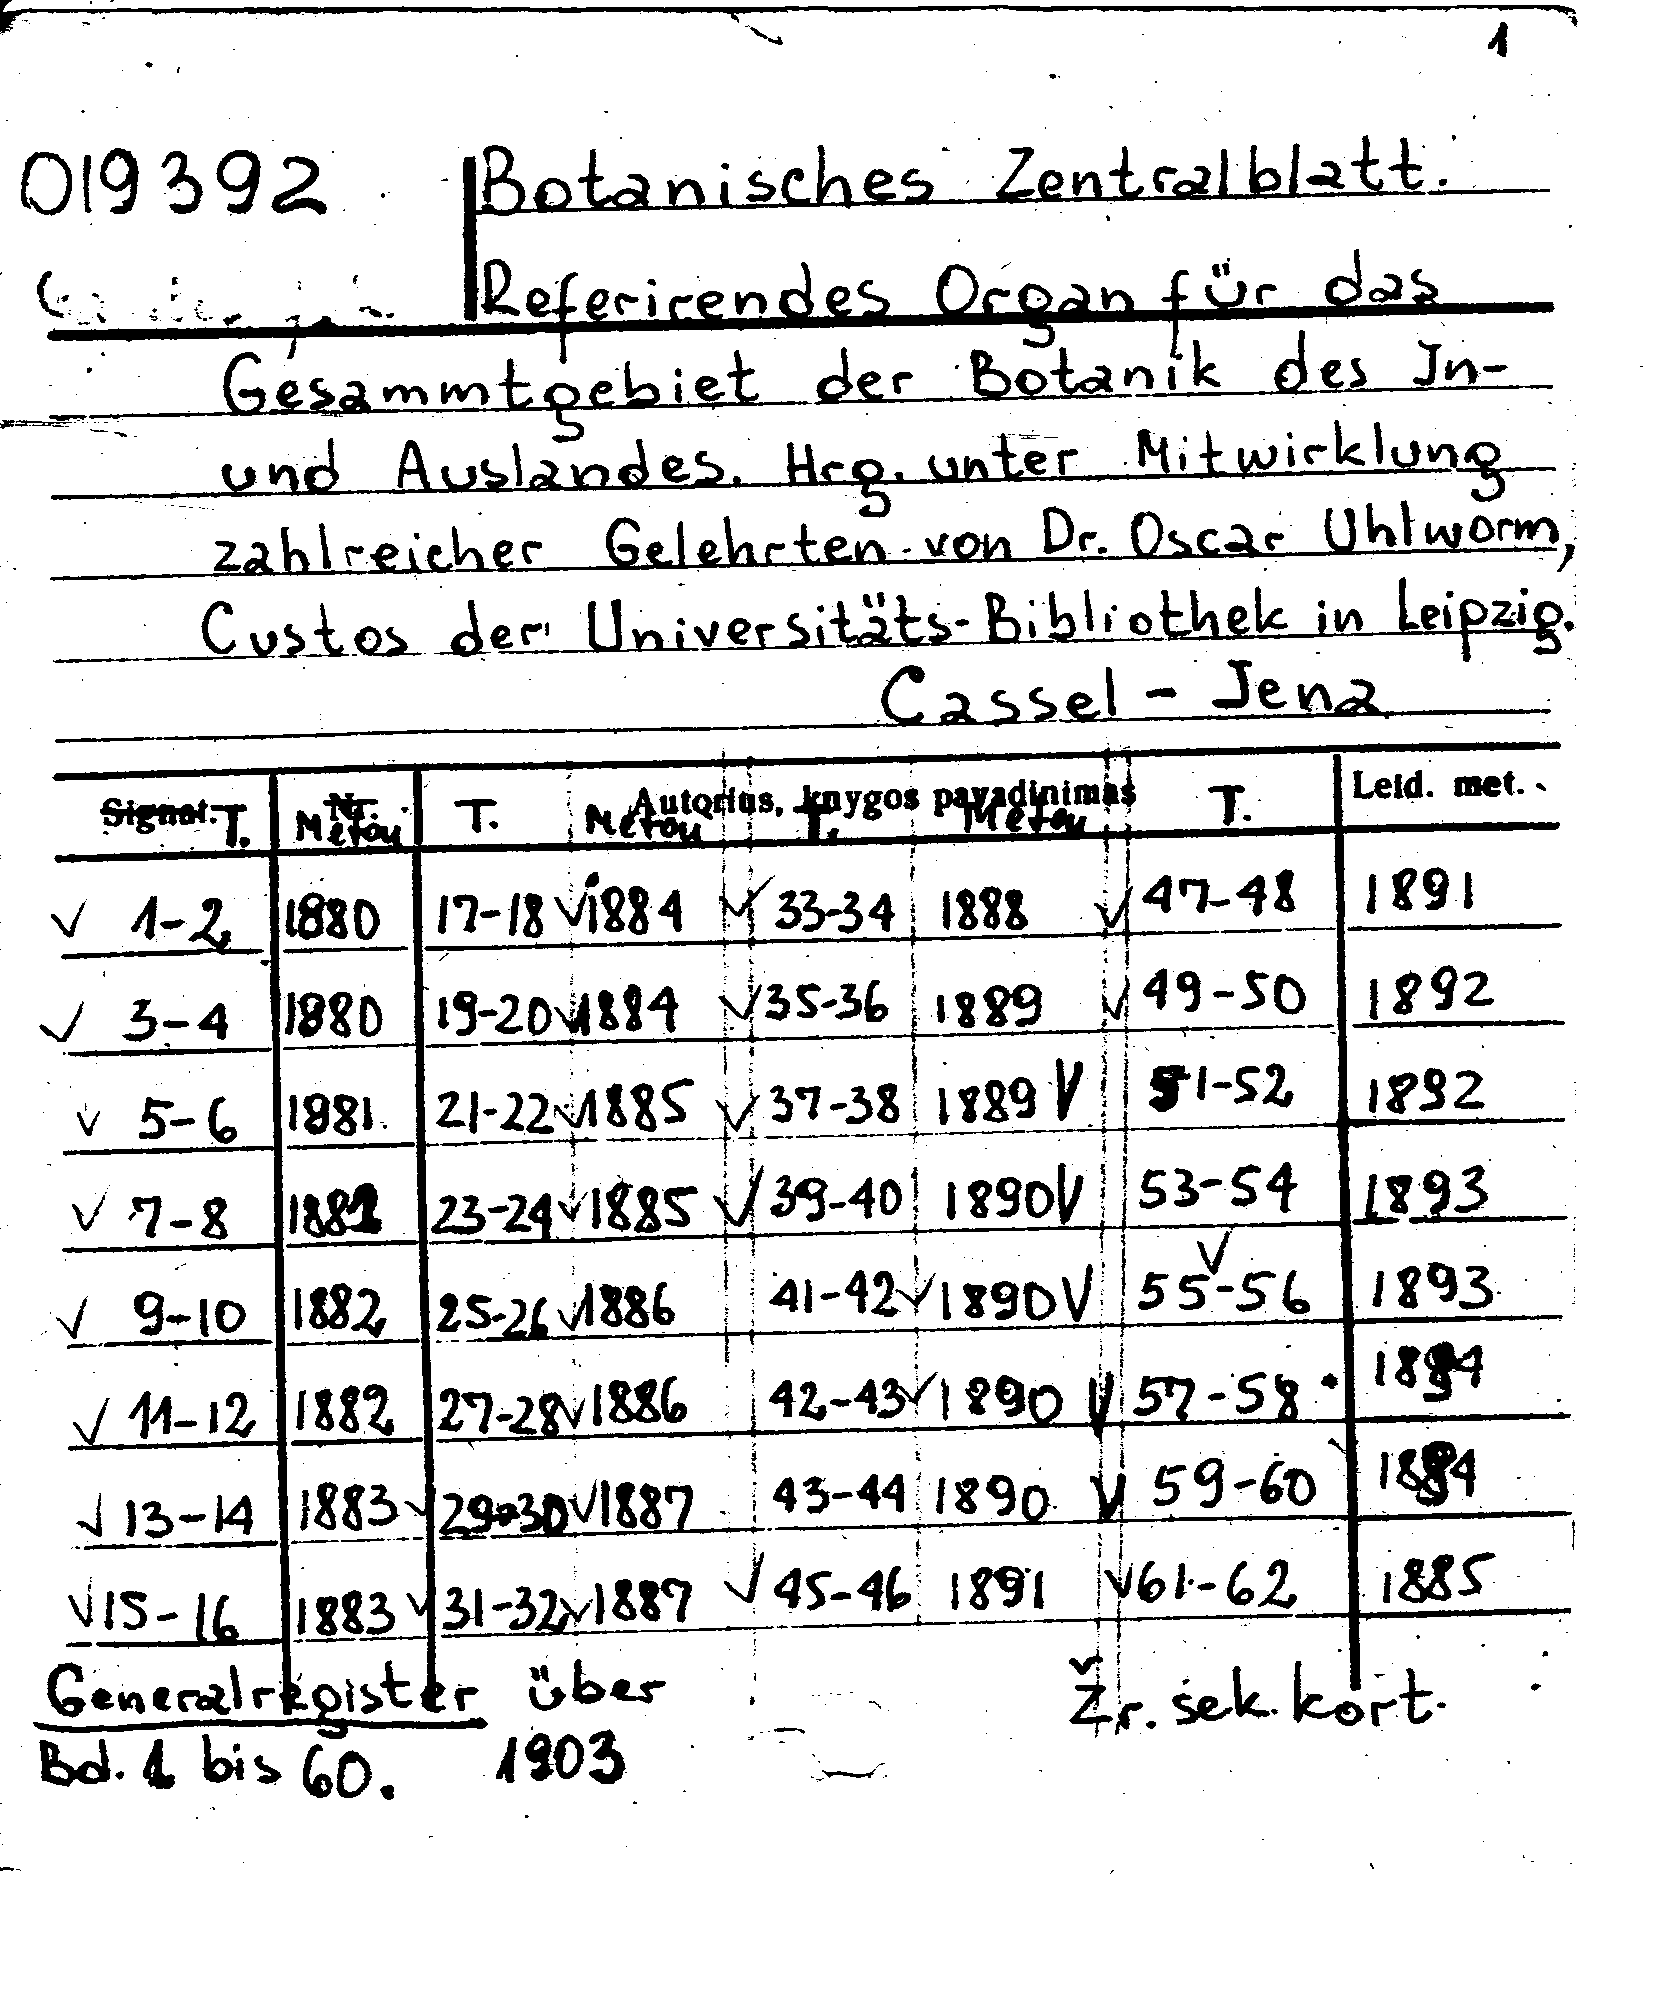 1
019392 Botanisches Zentralblatt.
Referirendes Organ für das
Gesammtgebiet der Botanik des In-
und Auslandes. Hrg. unter Mitwirklung
zahlreicher Gelehrten von Dr. Oscar Uhlworm,
Custos der Universitäts-Bibliothek in Leipzig.
Cassel - Jena
Signat. T. Nr. Metau T. Metau Autorius, knygos pavadinimas T. Metau T. Leid. met.
✓ 1-2 1880 17-18 ✓ 1884 ✓ 33-34 1888 ✓ 47-48 1891
✓ 3-4 1880 19-20 ✓ 1884 ✓ 35-36 1889 ✓ 49-50 1892
✓ 5-6 1881 21-22 ✓ 1885 ✓ 37-38 1889 V 51-52 1892
✓ 7-8 1881 23-24 ✓ 1885 ✓ 39-40 1890 V 53-54 1893
✓ 9-10 1882 25-26 ✓ 1886 41-42 ✓ 1890 V 55-56 ✓ 1893
✓ 11-12 1882 27-28 ✓ 1886 42-43 ✓ 1890 V 57-58 1894
✓ 13-14 1883 ✓ 29-30 ✓ 1887 43-44 1890 V 59-60 1894
✓ 15-16 1883 ✓ 31-32 ✓ 1887 ✓ 45-46 1891 ✓ 61-62 1885
Generalregister über Žr. sek. kort.
Bd. 1 bis 60. 1903